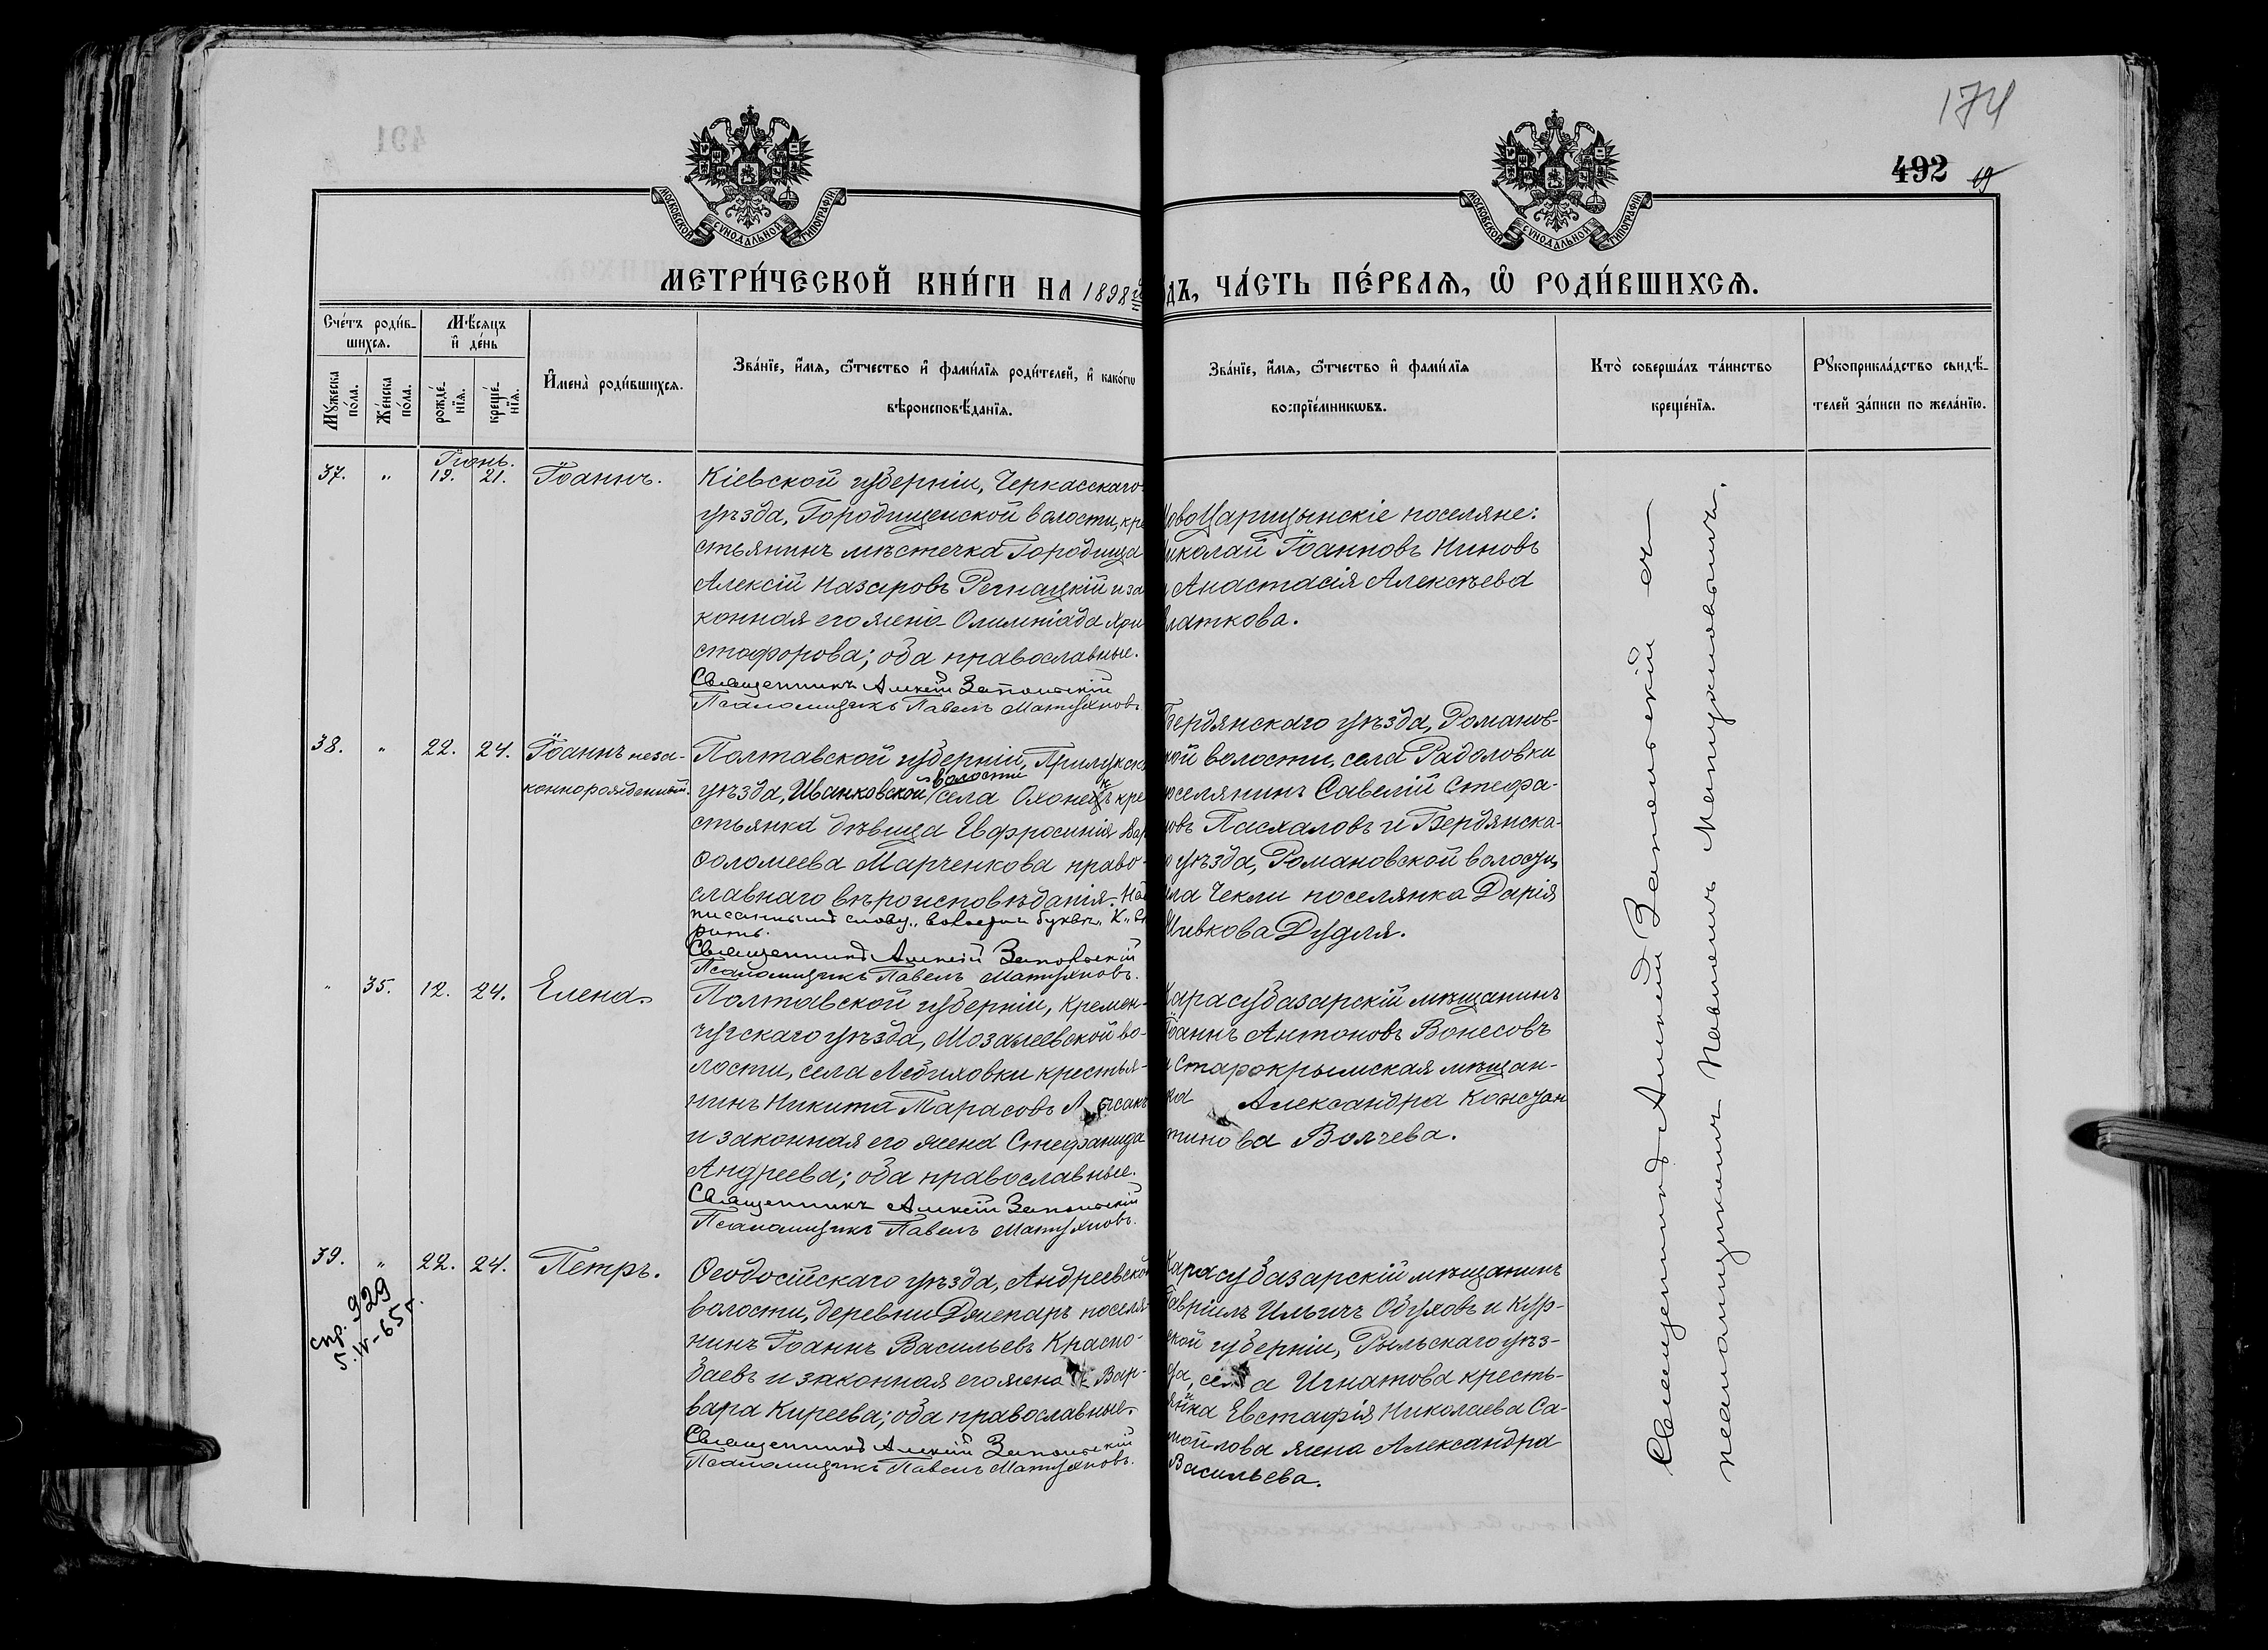 174
492 19
МОСКОВСКОЙ СУНОДАЛЬНОЙ ТИПОГРАФІИ.
МОСКОВСКОЙ СУНОДАЛЬНОЙ ТИПОГРАФІИ.
МЕТРИ́ЧЕСКОЙ КНИ́ГИ НА 1898
ДЪ, ЧА́СТЬ ПЕ́РВАѦ, Ѡ҆ РОДИ́ВШИХСѦ.
Сче́тъ роди́в-
шихсѧ.
Мꙋ́жеска
по́ла.
Же́нска
по́ла.
Мѣ́сѧцъ
и҆ де́нь
рожде́-
нїѧ.
креще́-
нїѧ.
И҆мена̀ роди́вшихсѧ.
Зва́нїе, и҆́мѧ, ѻ҆́тчество и҆ фами́лїѧ роди́телей, и҆ како́гѡ
вѣроисповѣ́данїѧ.
Зва́нїе, и҆́мѧ, ѻ҆́тчество и҆ фами́лїѧ
воспрїе́мникѡвъ.
Кто̀ соверша́лъ та́инство
креще́нїѧ.
Рꙋкоприкла́дство свидѣ́-
телей за́писи по жела́нїю.
Іюнь.
37. " 19. 21. Іоаннъ.
Кіевской губерніи, Черкасскаго
уѣзда, Городищенской волости, кре
стьянинъ мѣстечка Городища
Алексій Назаровъ и за
конная его жена Олимпіада Хри
стофорова; оба православные.
Священникъ Алексій Запольскій
Псаломщикъ Павелъ Матухновъ
овоЦарицынскіе поселяне:
иколай Іоанновъ Ниновъ
Анастасія Алексѣева
латкова.
38. " 22. 24. Іоаннъ неза-
коннорожденный.
Полтавской губерніи, Прилукск
уѣзда, Иванковской волости села кре
стьянка дѣвица Евфросинія Вар
ѳоломеева Марченкова право-
славнаго вѣроисповѣданія. Над
писанному слову "волости и букве "К" вѣ
рить.
Священникъ Алексій Запольскій
Псаломщикъ Павелъ Матухновъ.
Бердянскаго уѣзда, Романов-
кой волости, села Радоловки
оселянинъ Савелій Стефа-
новъ Пасхаловъ и Бердянска-
о уѣзда, Романовской волости,
ела Чекли поселянка Дарія
Мивкова Дудля.
" 35. 12. 24. Елена.
Полтавской губерніи, Кремен-
чугскаго уѣзда, Мозалеевской во-
лости, села крестья-
нинъ Никита Тарасовъ
и законная его жена Стефанида
Андреева; оба православные.
Священникъ Алексій Запольскій
Псаломщикъ Павелъ Матухновъ.
Карасубазарскій мѣщанинъ
Іоаннъ Антоновъ Вонесовъ
и Старокрымская мѣщан-
ка Александра Констан
тинова Волчева.
39. " 22. 24. Петръ.
спр. 929
5.IV-65г.
Ѳеодосійскаго уѣзда, Андреевской
волости, деревни Джепаръ поселя-
нинъ Іоаннъ Васильевъ Красно-
баевъ и законная его жена Вар-
вара Киреева; оба православные.
Священникъ Алексій Запольскій
Псаломщикъ Павелъ Матухновъ.
Карасубазарскій мѣщанинъ
Гавріилъ Ильичъ Обуховъ и Кур-
ской губерніи, Рыльскаго уѣз-
да, села Игнатова кресть-
янина Евстафія Николаева Са-
мойлова жена Александра
Васильева.
Священникъ Алексій Запольскій съ
псаломщикомъ Павломъ Матухновымъ.